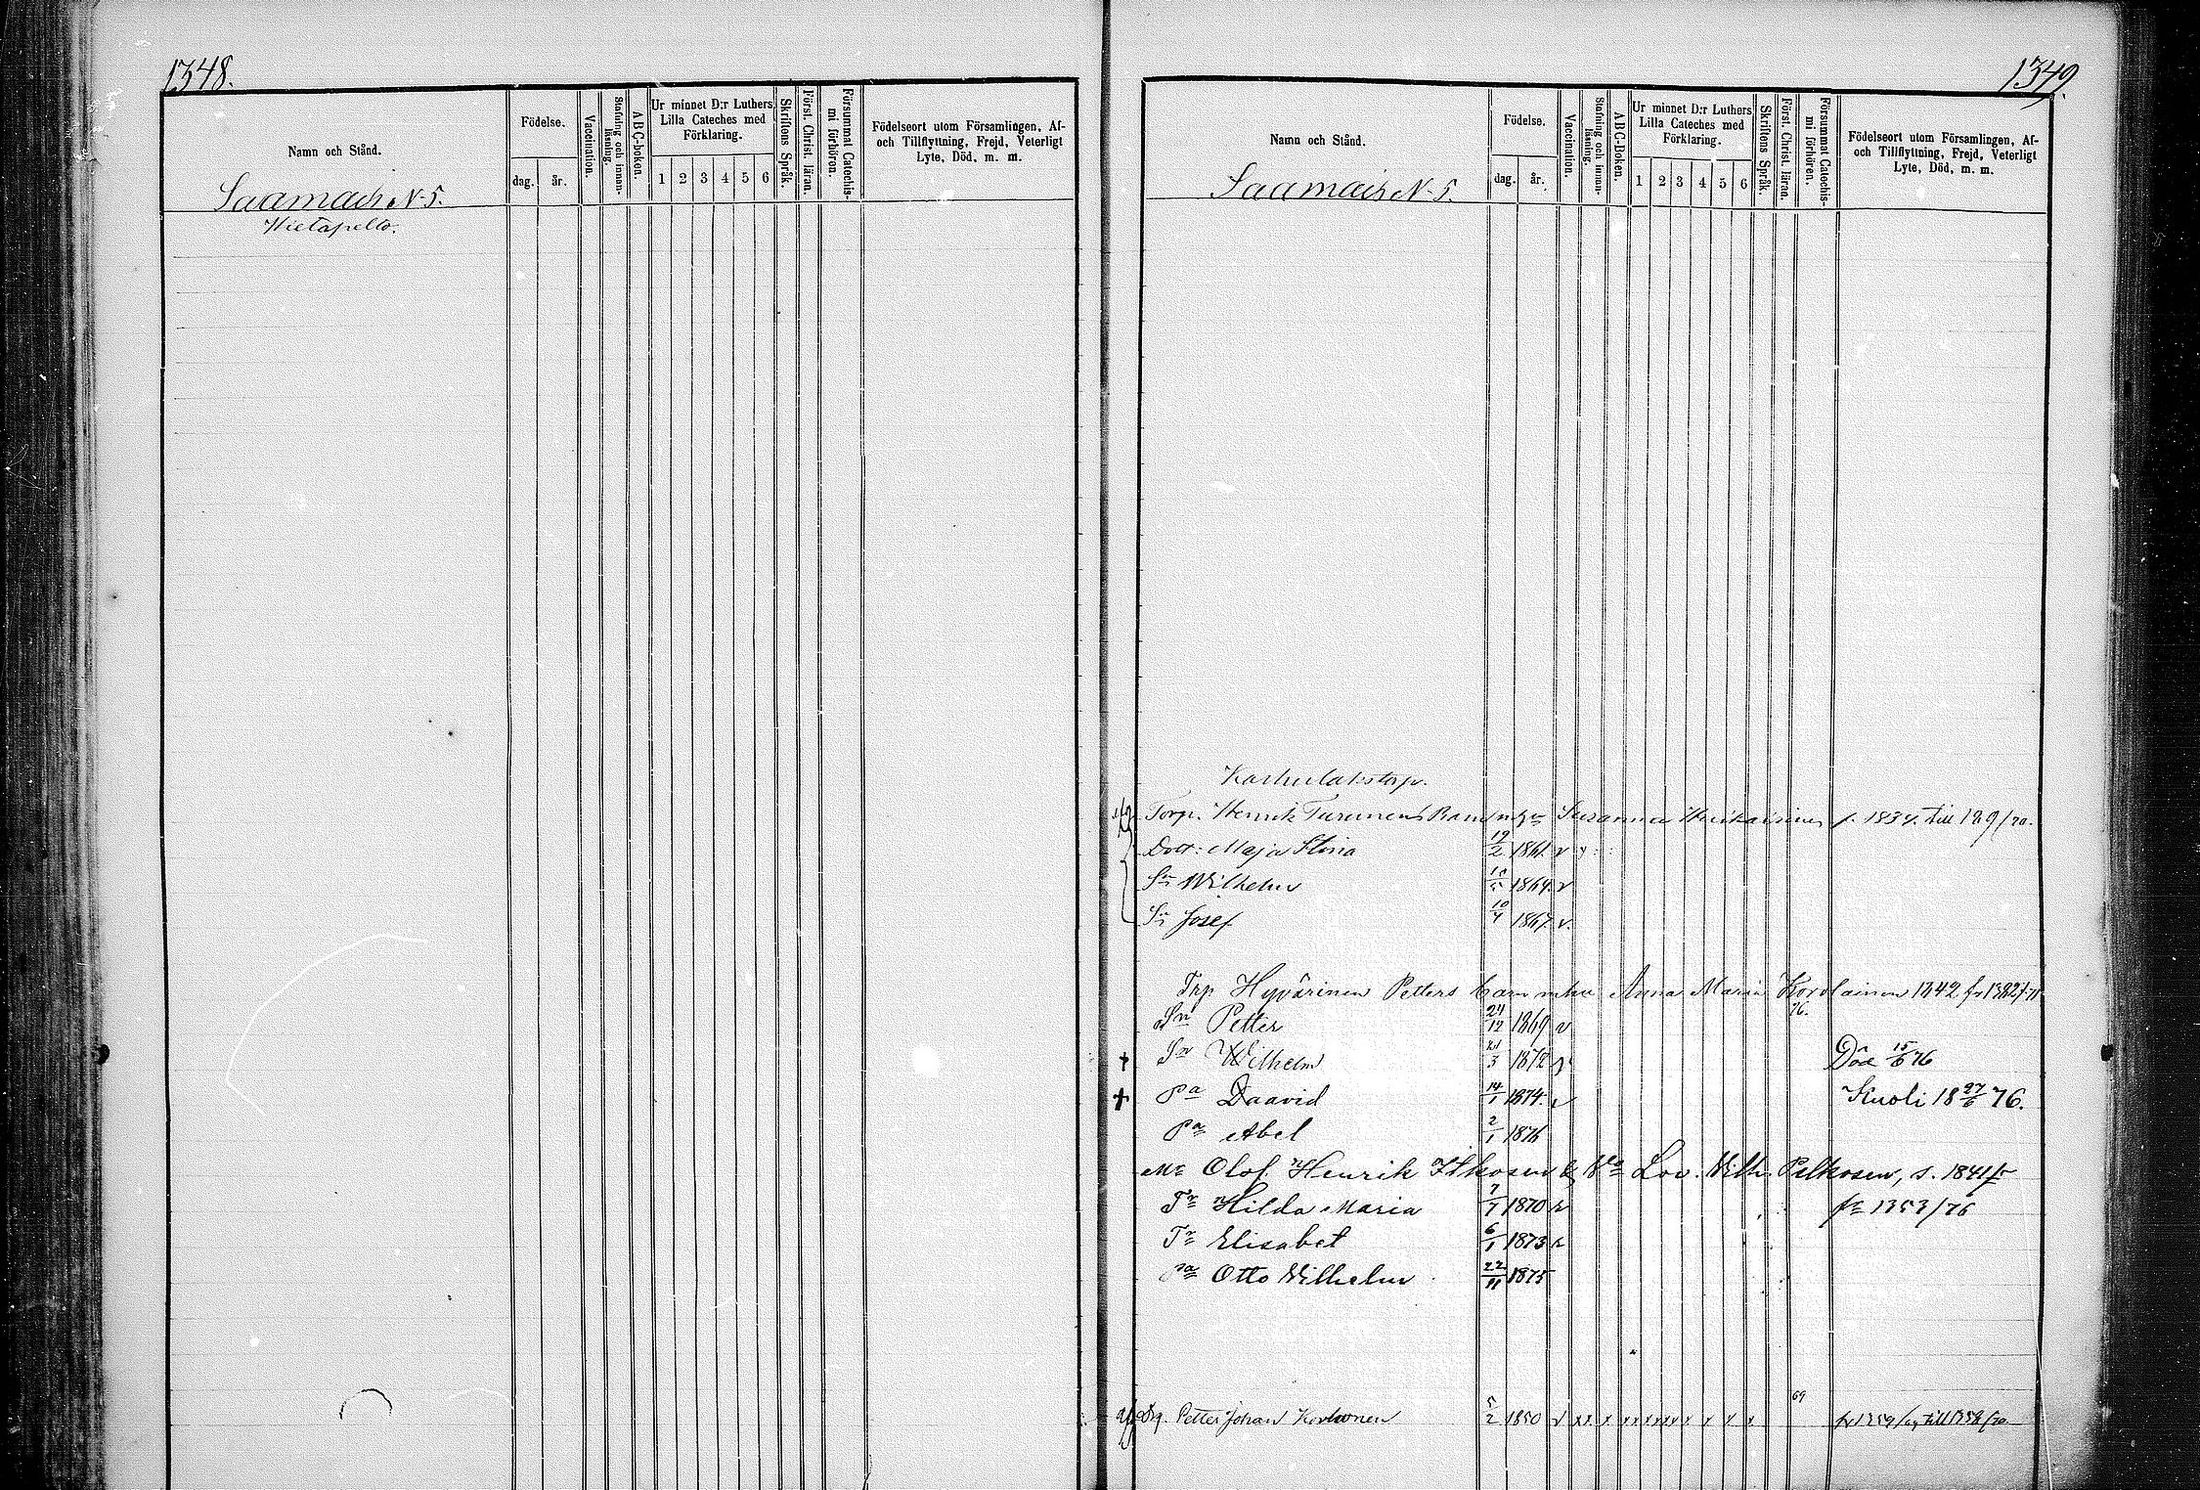 1348.
Namn och Stånd.
Födelse.
dag. år.
Vaccination.
Stafning och innanläsning.
ABC-boken.
Ur minnet D:r Luthers Lilla Cateches med Förklaring.
1 2 3 4 5 6
Skriftens Språk.
Först. Christ. läran.
Försummat Catechismi förhören.
Födelseort utom Församlingen, Af- och Tillflyttning, Frejd, Veterligt Lyte, Död, m. m.
Saamais N 5.
Hietapelto.
1349.
Namn och Stånd.
Födelse.
dag. år.
Vaccination.
Stafning och innanläsning.
ABC-Boken.
Ur minnet D:r Luthers Lilla Cateches med Förklaring.
1 2 3 4 5 6
Skriftens Språk.
Först. Christ. läran.
Försummat Catechismi förhören.
Födelseort utom Församlingen, Af- och Tillflyttning, Frejd, Veterligt Lyte, Död, m. m.
Saamais N 5.
Torp. Henrik Turunens Barn Susanna f. 1834. till
Dotr: Maja Stina 19/2 1861. v
Sn Wilhelm 1864. v
Sn Josef 10/4 1867. v.
Trp Hyvärinen Petters barn Anna Maria 1842
76.
Sn Petter 24/12 1869 v
Sn Wilhelm 3 1872 Död 76
† Pa Daavid 14/1 1874. v Kuoli 18 27/6 76.
Pa Abel 2/1 1876
Olof Henrik Itkosen & Lov. Wilh. Pelkosen, s. 1841
Tr Hilda Maria 1870 fr 1353/76
Tr Elisabet 6/1 1873
Pa Otto Wilhelm 22/11 1875
69
Petter Johan Korhonen 5/2 1850 v xx x x x x x x x x x